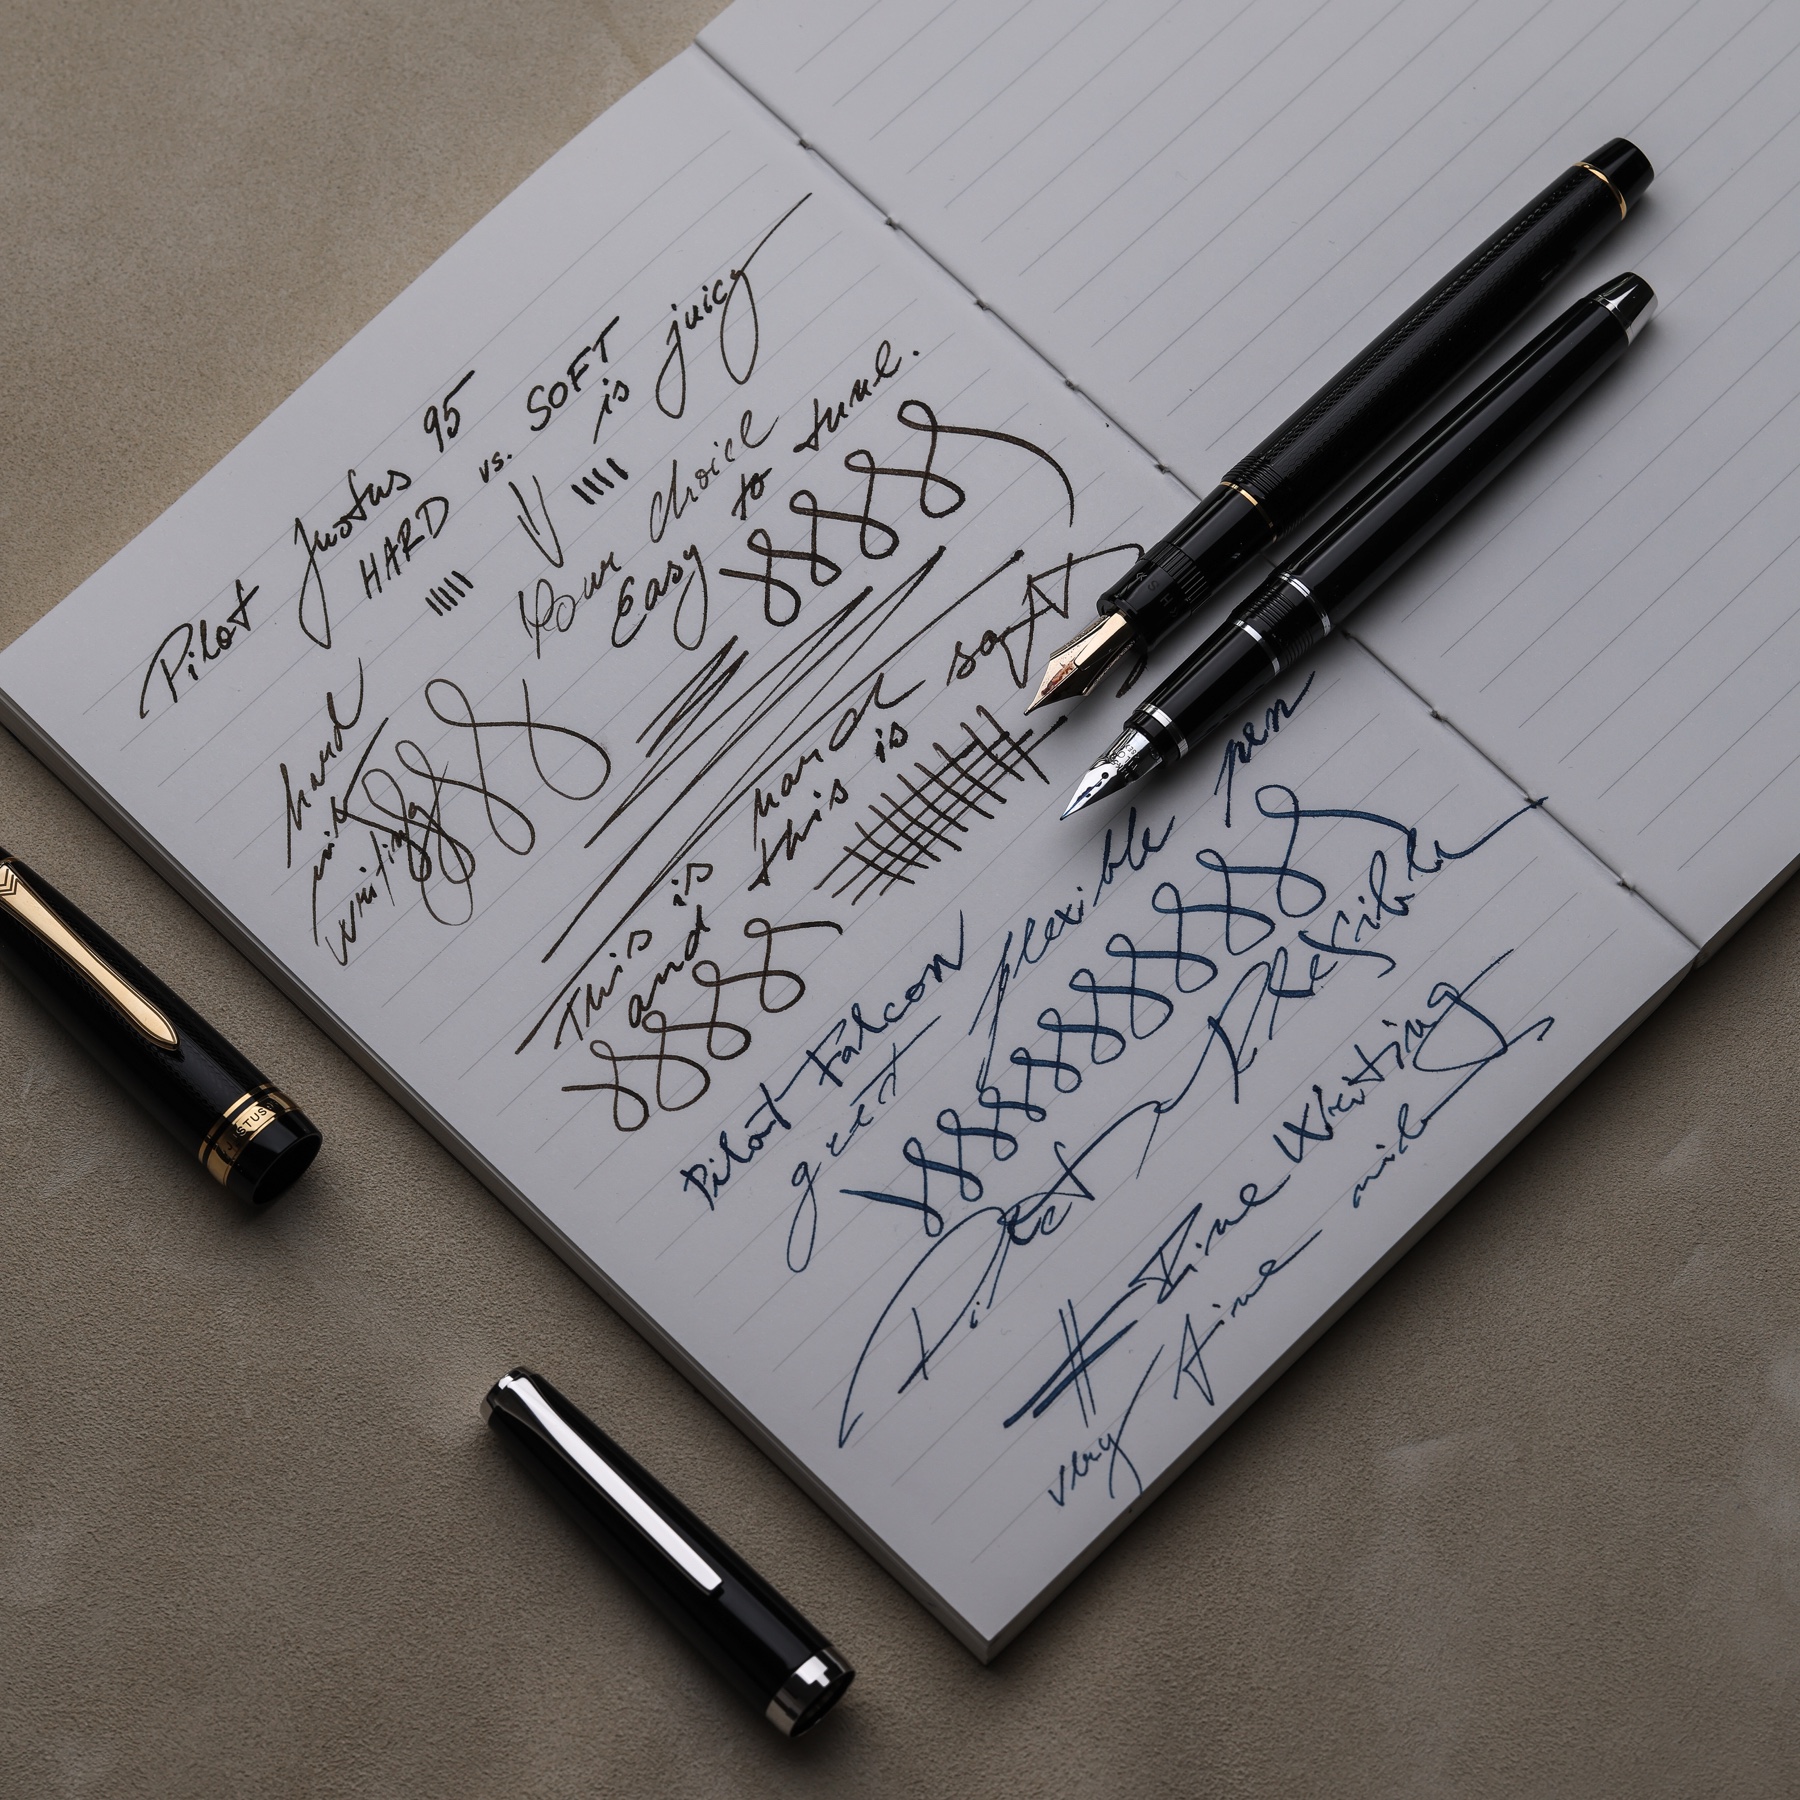 Pilot Justus 95
HARD vs. SOFT is juicy
Your choice
Easy to tune.
hard
writing
8888
8888
This is hard
and this is soft
8888
Pilot Falcon
great flexible pen
88888888
Pilot Flexible
Fine Writing
very fine
JUSTUS